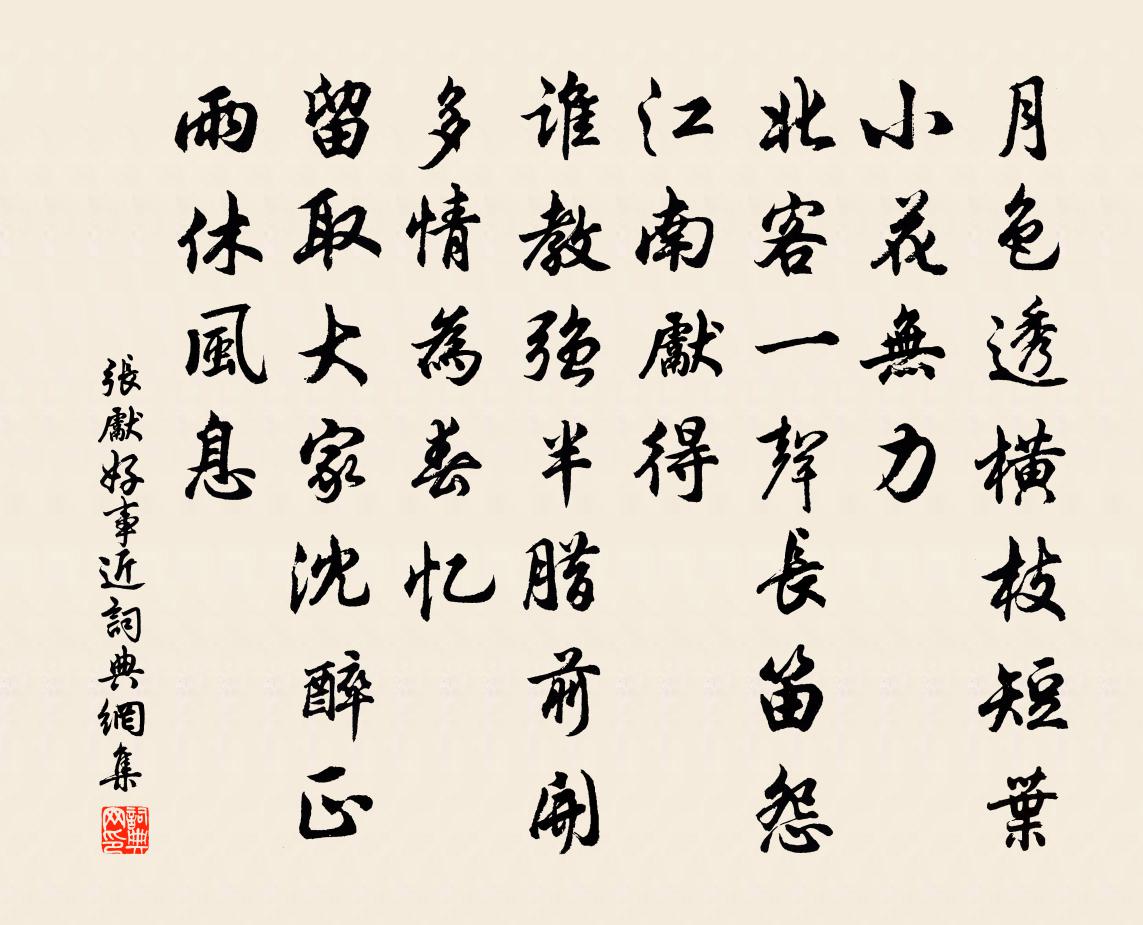 月色透橫枝短葉
小花無力
北客一聲長笛怨
江南獻得
誰教強半腊前開
多情為春忆
留取大家沈醉正
雨休風息
張獻好事近詞典網集
詞典网印